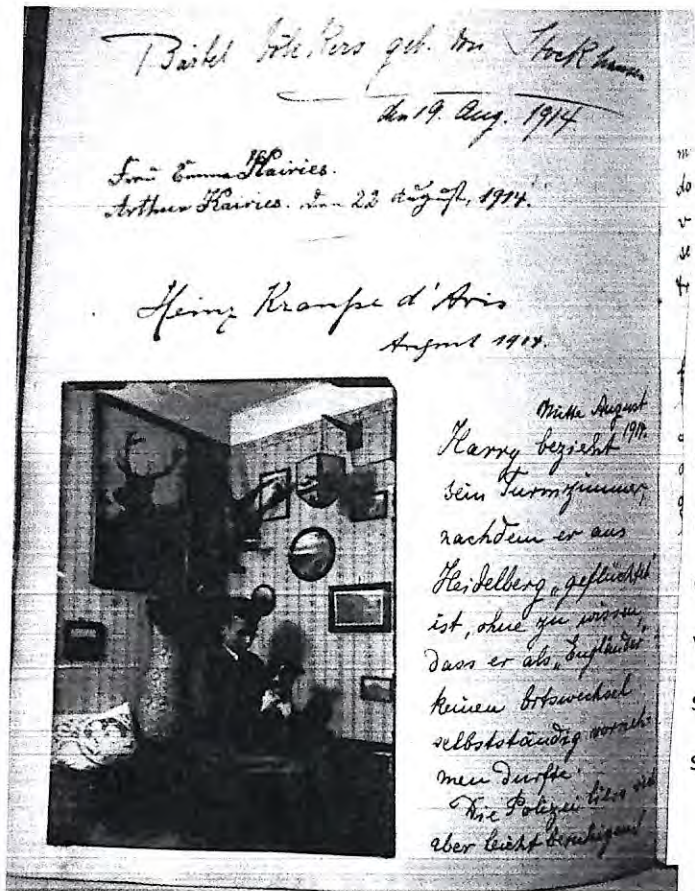 Bärbel Wölckers geb. von Stockhausen
den 19. Aug. 1914
Frau Emma Kairies.
Arthur Kairies. den 22 August, 1914.
Heinz Krampe d'Avis
August 1914.
Mitte August
1914.
Harry bezieht
sein Turmzimmer,
nachdem er aus
Heidelberg „geflüchtet“
ist, ohne zu wissen,
dass er als „Engländer“
keinen Ortswechsel
selbstständig vorneh-
men durfte!
Die Polizei liess sich
aber leicht beruhigen!